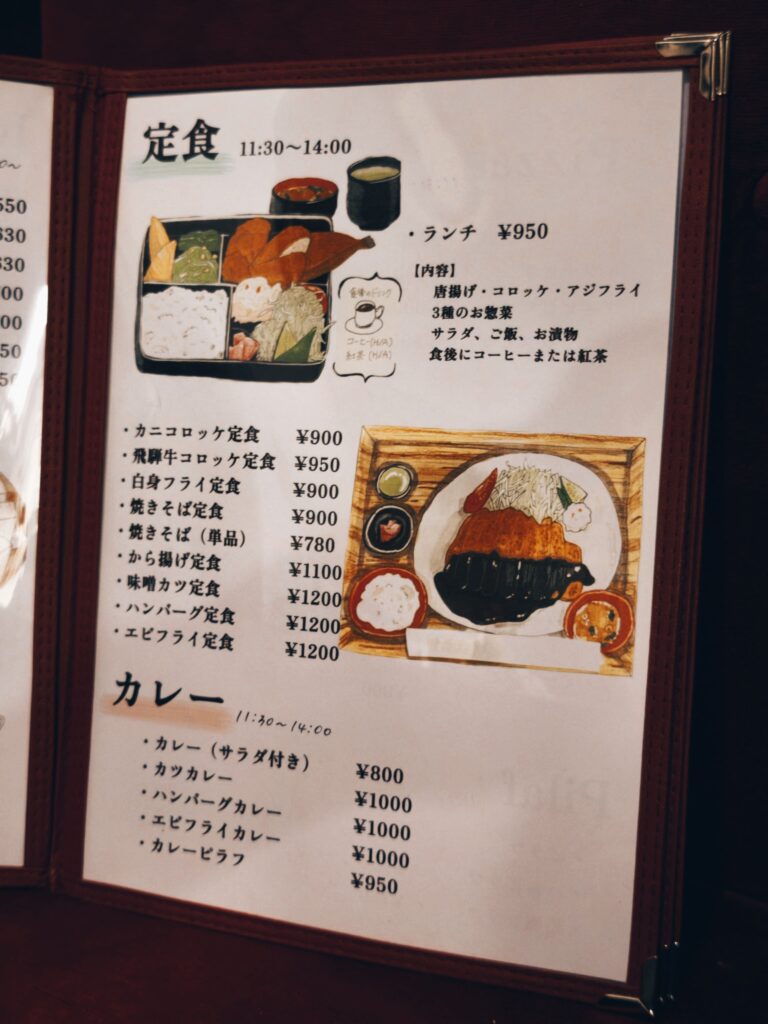 550
定食 11:30〜14:00
・ランチ ¥950
【内容】
唐揚げ・コロッケ・アジフライ
3種のお惣菜
サラダ、ご飯、お漬物
食後にコーヒーまたは紅茶
食後のドリンク
コーヒー(H/A)
紅茶(H/A)
・カニコロッケ定食 ¥900
・飛騨牛コロッケ定食 ¥950
・白身フライ定食 ¥900
・焼きそば定食 ¥900
・焼きそば（単品） ¥780
・から揚げ定食 ¥1100
・味噌カツ定食 ¥1200
・ハンバーグ定食 ¥1200
・エビフライ定食 ¥1200
カレー 11:30〜14:00
・カレー（サラダ付き） ¥800
・カツカレー ¥1000
・ハンバーグカレー ¥1000
・エビフライカレー ¥1000
・カレーピラフ ¥950